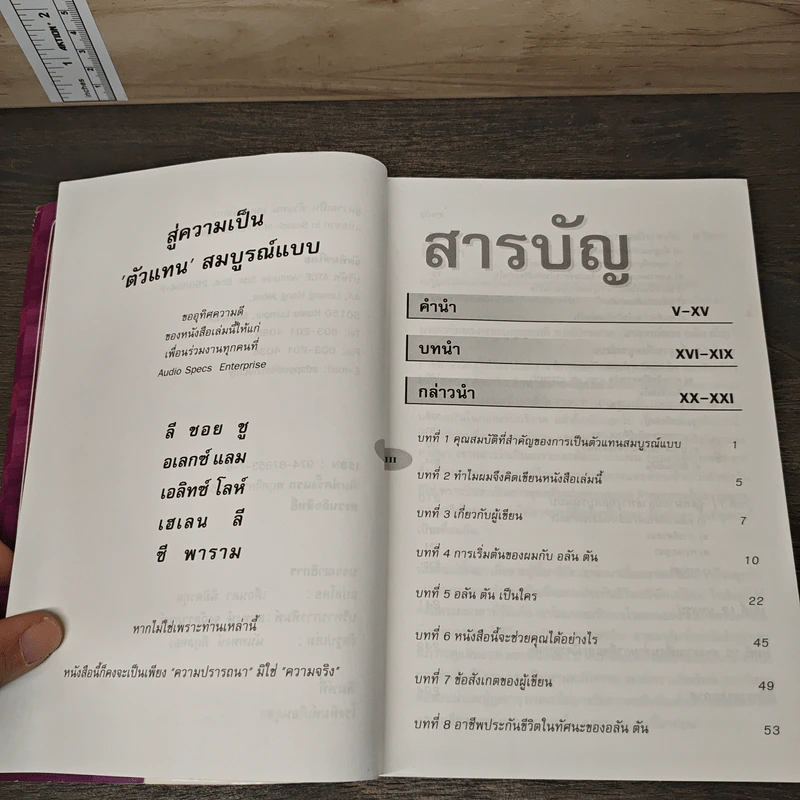 สู่ความเป็น
'ตัวแทน' สมบูรณ์แบบ
ขออุทิศความดี
ของหนังสือเล่มนี้ให้แก่
เพื่อนร่วมงานทุกคนที่
Audio Specs Enterprise
ลี ชอย ชู
อเลกซ์ แลม
เอลิทซ์ โลห์
เฮเลน ลี
ซี พาราม
หากไม่ใช่เพราะท่านเหล่านี้
หนังสือนี้ก็คงจะเป็นเพียง "ความปรารถนา" มิใช่ "ความจริง"
III
สารบัญ
คำนำ V-XV
บทนำ XVI-XIX
กล่าวนำ XX-XXI
บทที่ 1 คุณสมบัติที่สำคัญของการเป็นตัวแทนสมบูรณ์แบบ 1
บทที่ 2 ทำไมผมจึงคิดเขียนหนังสือเล่มนี้ 5
บทที่ 3 เกี่ยวกับผู้เขียน 7
บทที่ 4 การเริ่มต้นของผมกับ อลัน ตัน 10
บทที่ 5 อลัน ตัน เป็นใคร 22
บทที่ 6 หนังสือนี้จะช่วยคุณได้อย่างไร 45
บทที่ 7 ข้อสังเกตของผู้เขียน 49
บทที่ 8 อาชีพประกันชีวิตในทัศนะของอลัน ตัน 53